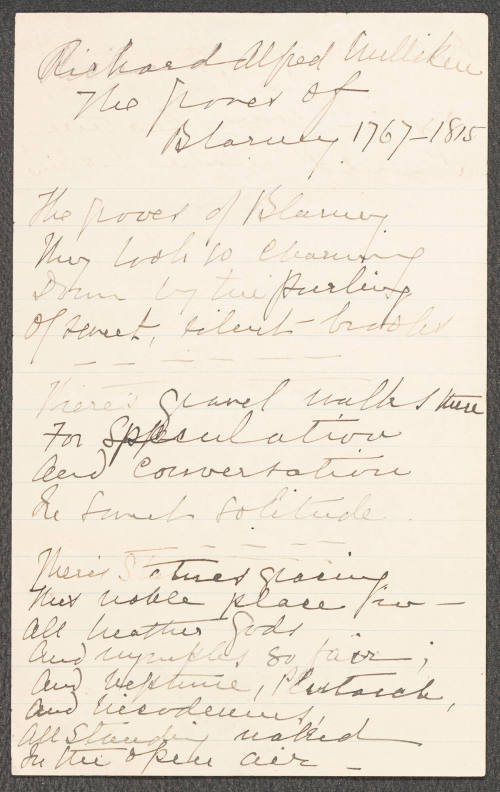 Richard Alfred Milliken
The groves of
Blarney 1767-1815
The groves of Blarney
They look so charming
Down by the purling
Of sweet, silent brooks
There's gravel walks there
For Speculation
And Conversation
In sweet solitude.
There's Statues gracing
This noble place in —
All heathen gods
And nymphs so fair;
And Neptune, Plutarch,
And Nicodemus,
All Standing naked
In the open air —